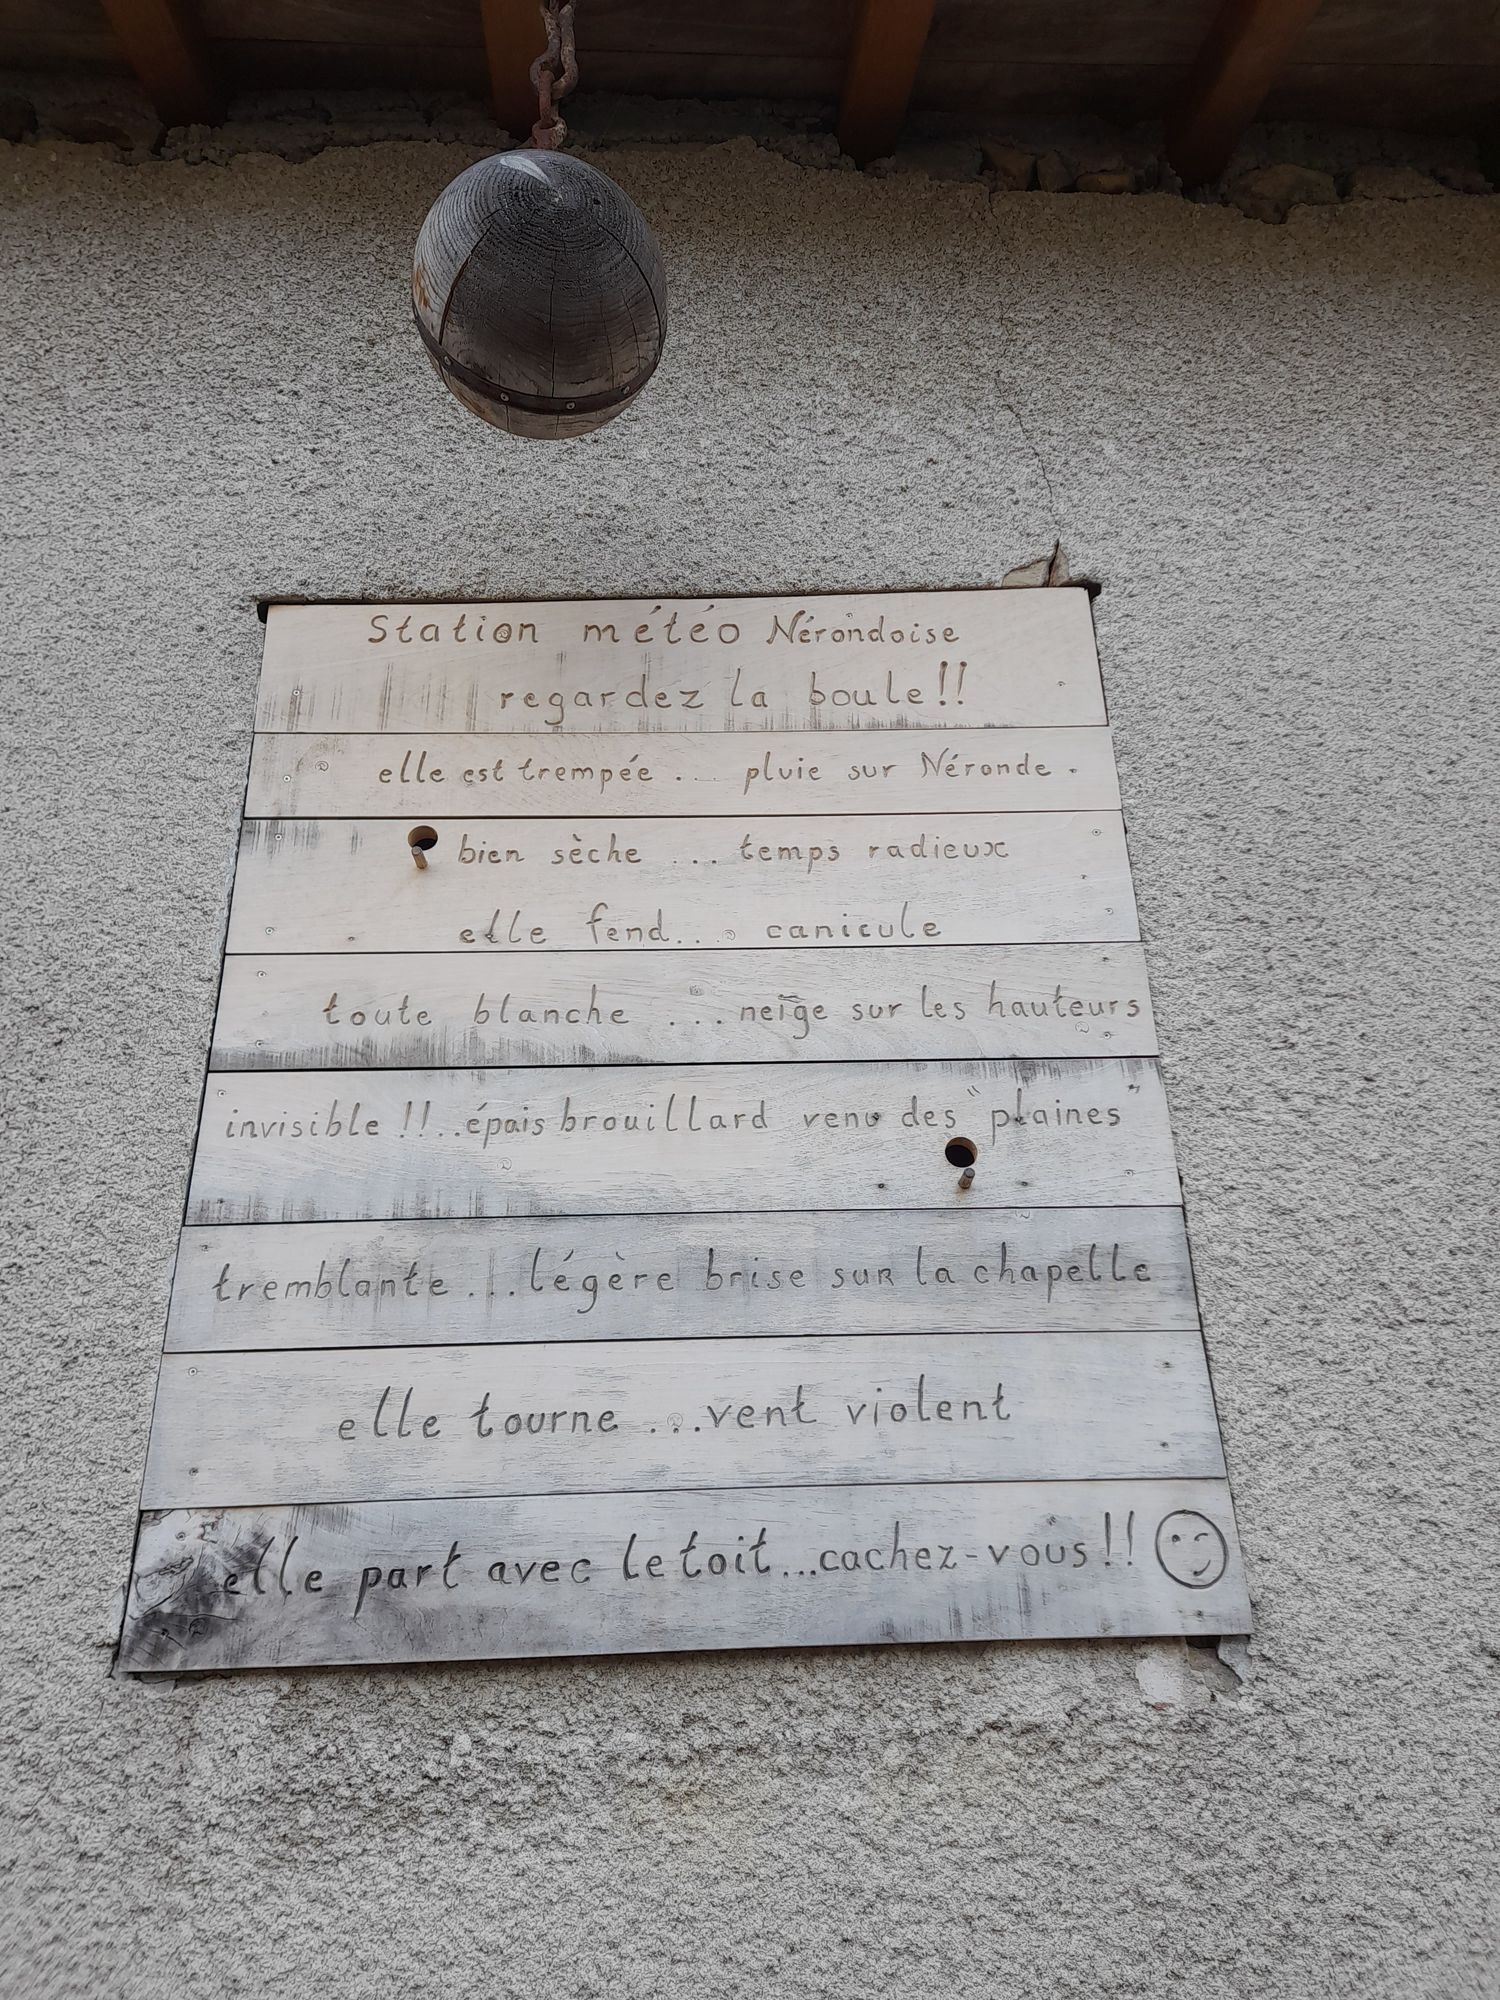 Station météo Nérondoise
regardez la boule!!
elle est trempée ... pluie sur Néronde.
bien sèche ... temps radieux
elle fend... canicule
toute blanche ... neige sur les hauteurs
invisible !!..épais brouillard venu des "plaines"
tremblante ...légère brise sur la chapelle
elle tourne ...vent violent
elle part avec le toit...cachez-vous!!